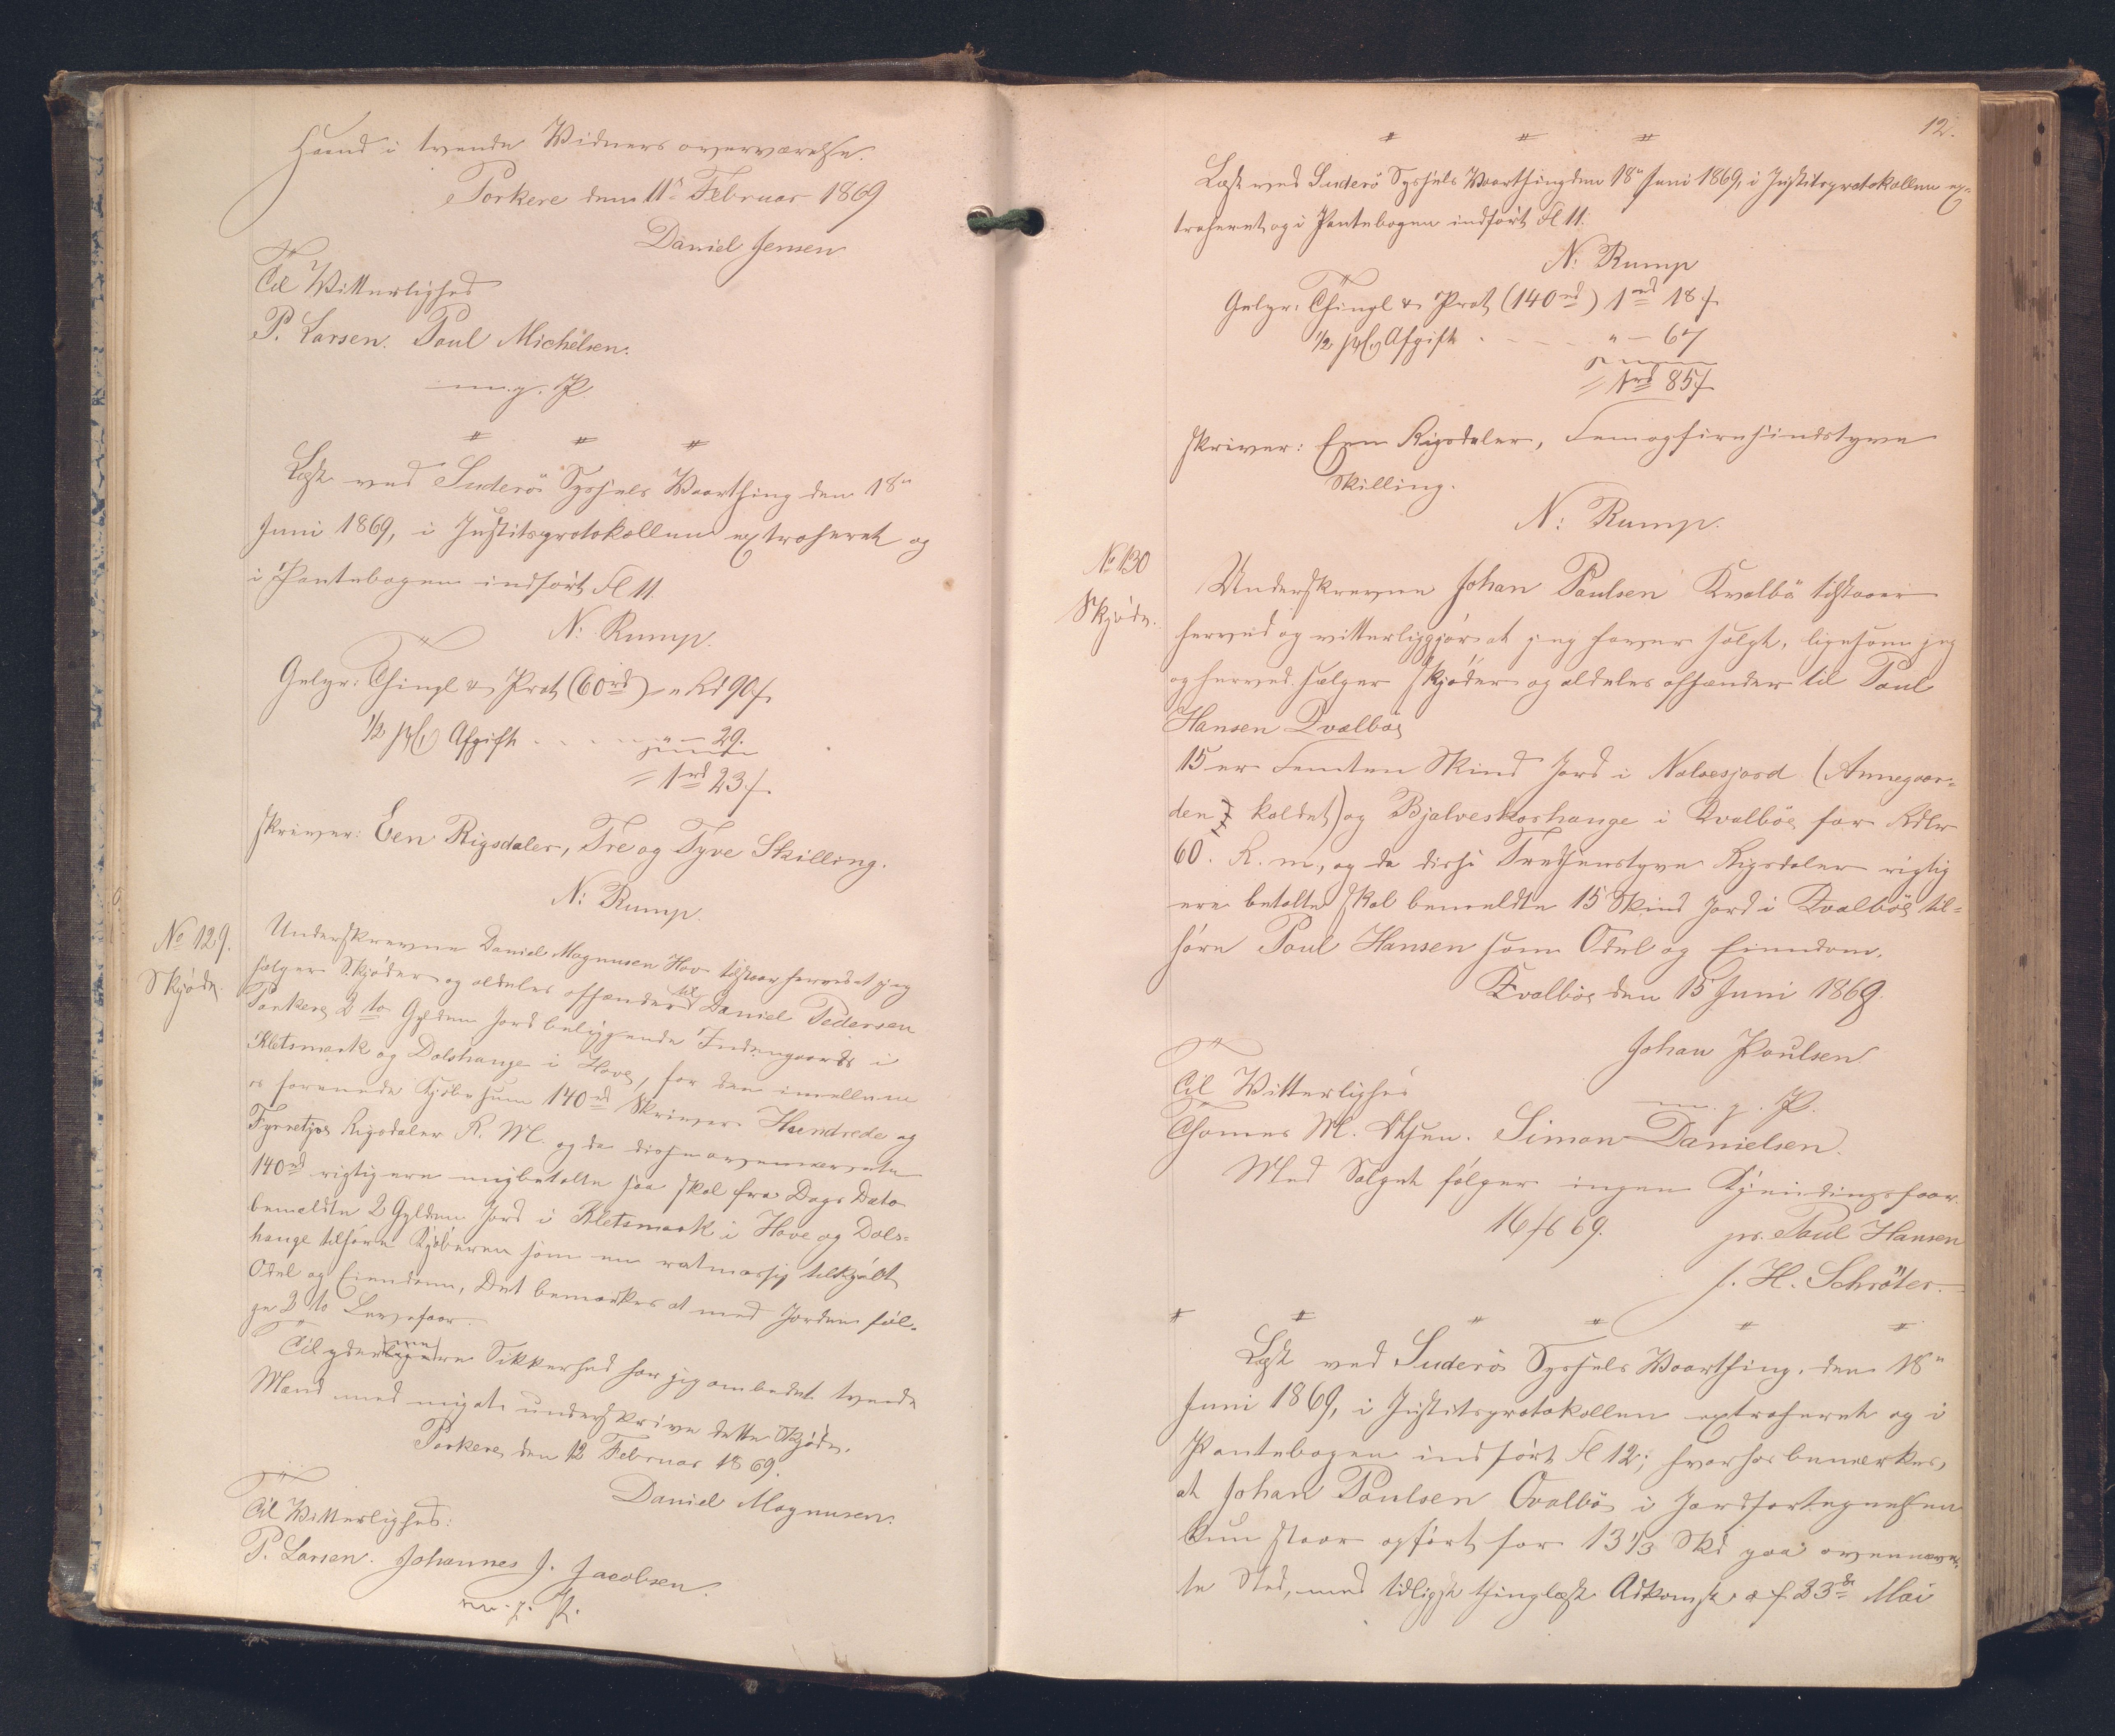 Haand i tvende Widners overværelse.
Porkere den 11te Februar 1869
Daniel Jensen
Til Witterlighed
P. Larsen. Poul Michelsen.
m. p. P.
Læst ved Suderö Syssels Vaarthing den 18n
Juni 1869, i Justitsprotokollen extraheret og
i Pantebogen indført Fl 11.
N: Rump.
Gebyr: Thingl & Prot (60rd) " Rd 90 s
1/2 pCt Afgift . . . . " – 29.
= 1rd 23 s
skriver: Een Rigsdaler, Tre og Tyve Skilling.
N: Rump.
No 129.
Skjöde.
Underskrevne Daniel Magnusen Hov tilstaar herved at jeg
sælger Skjöder og aldeles afhænder til Daniel Pedersen
Porkere 2 to Gylden Jord beliggende Indengaards i
Kletsmark og Dalshauge i Hove, for den imellem
os forenede Kjöbesum 140rd skriver Hundrede og
Fyrretyve Rigsdaler R. M. og da disse ovennævnte
140rd rigtig ere mig betalte saa skal fra Dags Dato
bemeldte 2 Gylden Jord i Kletsmark i Hove og Dals=
hauge tilhøre Kjöberen som en retmæssig tilkjøbt
Odel og Eiendom, Det bemærkes at med Jorden föl=
ge 2 to Leiefaar.
Til yderligere Sikkerhed har jeg ombedet tvende
Mænd med mig at underskrive dette Skjöde.
Porkere den 12 Februar 1869.
Daniel Magnusen.
Til Witterlighed:
P. Larsen. Johannes J. Jacobsen.
m. p. P.
12.
Læst ved Suderö Syssels Vaarthing den 18n Juni 1869, i Justitsprotokollen ex=
traheret og i Pantebogen indført Fl 11.
N: Rump
Gebyr: Thingl & Prot (140rd) 1rd 18 s
1/2 pCt Afgift . . . . " – 67
= 1rd 85 s
skriver: Een Rigsdaler, Femogfirsindstyve
Skilling.
N: Rump.
No 130
Skjöde.
Underskrevne Johan Poulsen Kvalbö tilstaaer
herved og vitterliggjör at jeg haver solgt, ligesom jeg
og herved sælger skjöder og aldeles afhænder til Poul
Hansen Qvalböe
15 er Femten Skind Jord i Nalvesjord (Annegaar=
den kaldet) og Bjalveskorhauge i Qvalböe for Rdlr
60. R. m, og da disse Tredsenstyve Rigsdaler rigtig
ere betalte skal bemeldte 15 Skind Jord i Qvalböe til=
høre Poul Hansen som Odel og Eiendom.
Qvalböe den 15 Juni 1869.
Johan Poulsen
Til Witterlighed
m. p. P.
Thomas M. Olsen. Simon Danielsen.
Med Salget fölger ingen Kjendingsfaar.
16/6 69. pr. Poul Hansen
J. H. Schröter.
Læst ved Suderö Syssels Vaarthing den 18n
Juni 1869, i Justitsprotokollen extraheret og i
Pantebogen indført Fl 12; hvorhos bemærkes,
at Johan Poulsen Qvalbö i Jordfortegnelsen
kun staar opført for 13 1/3 Skd paa ovennævn=
te Sted, med tidligst thinglæst Adkomst af 23de Mai